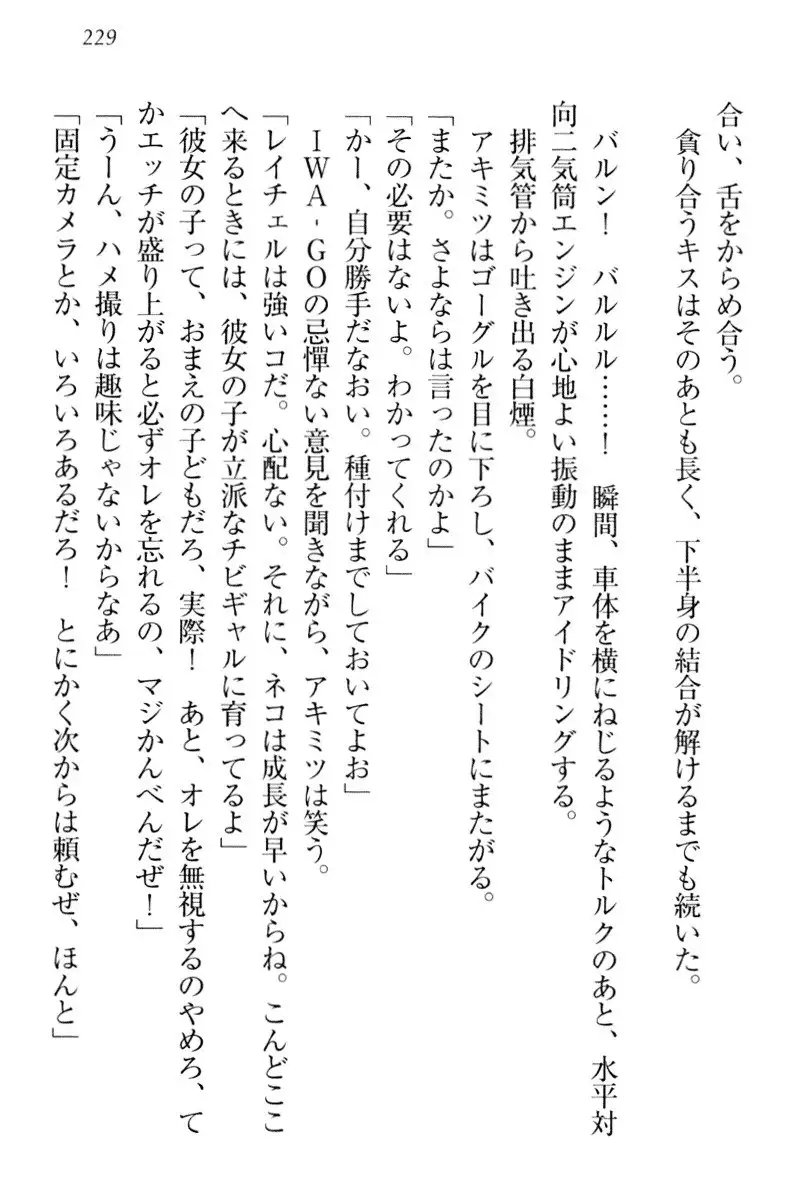 229
合い、舌をからめ合う。
貪り合うキスはそのあとも長く、下半身の結合が解けるまでも続いた。
バルン！　バルルル……！　瞬間、車体を横にねじるようなトルクのあと、水平対
向二気筒エンジンが心地よい振動のままアイドリングする。
排気管から吐き出る白煙。
アキミツはゴーグルを目に下ろし、バイクのシートにまたがる。
「またか。さよならは言ったのかよ」
「その必要はないよ。わかってくれる」
「かー、自分勝手だなおい。種付けまでしておいてよお」
IWA-GOの忌憚ない意見を聞きながら、アキミツは笑う。
「レイチェルは強いコだ。心配ない。それに、ネコは成長が早いからね。こんどここ
へ来るときには、彼女の子が立派なチビギャルに育ってるよ」
「彼女の子って、おまえの子どもだろ、実際！　あと、オレを無視するのやめろ、て
かエッチが盛り上がると必ずオレを忘れるの、マジかんべんだぜ！」
「うーん、ハメ撮りは趣味じゃないからなあ」
「固定カメラとか、いろいろあるだろ！　とにかく次からは頼むぜ、ほんと」